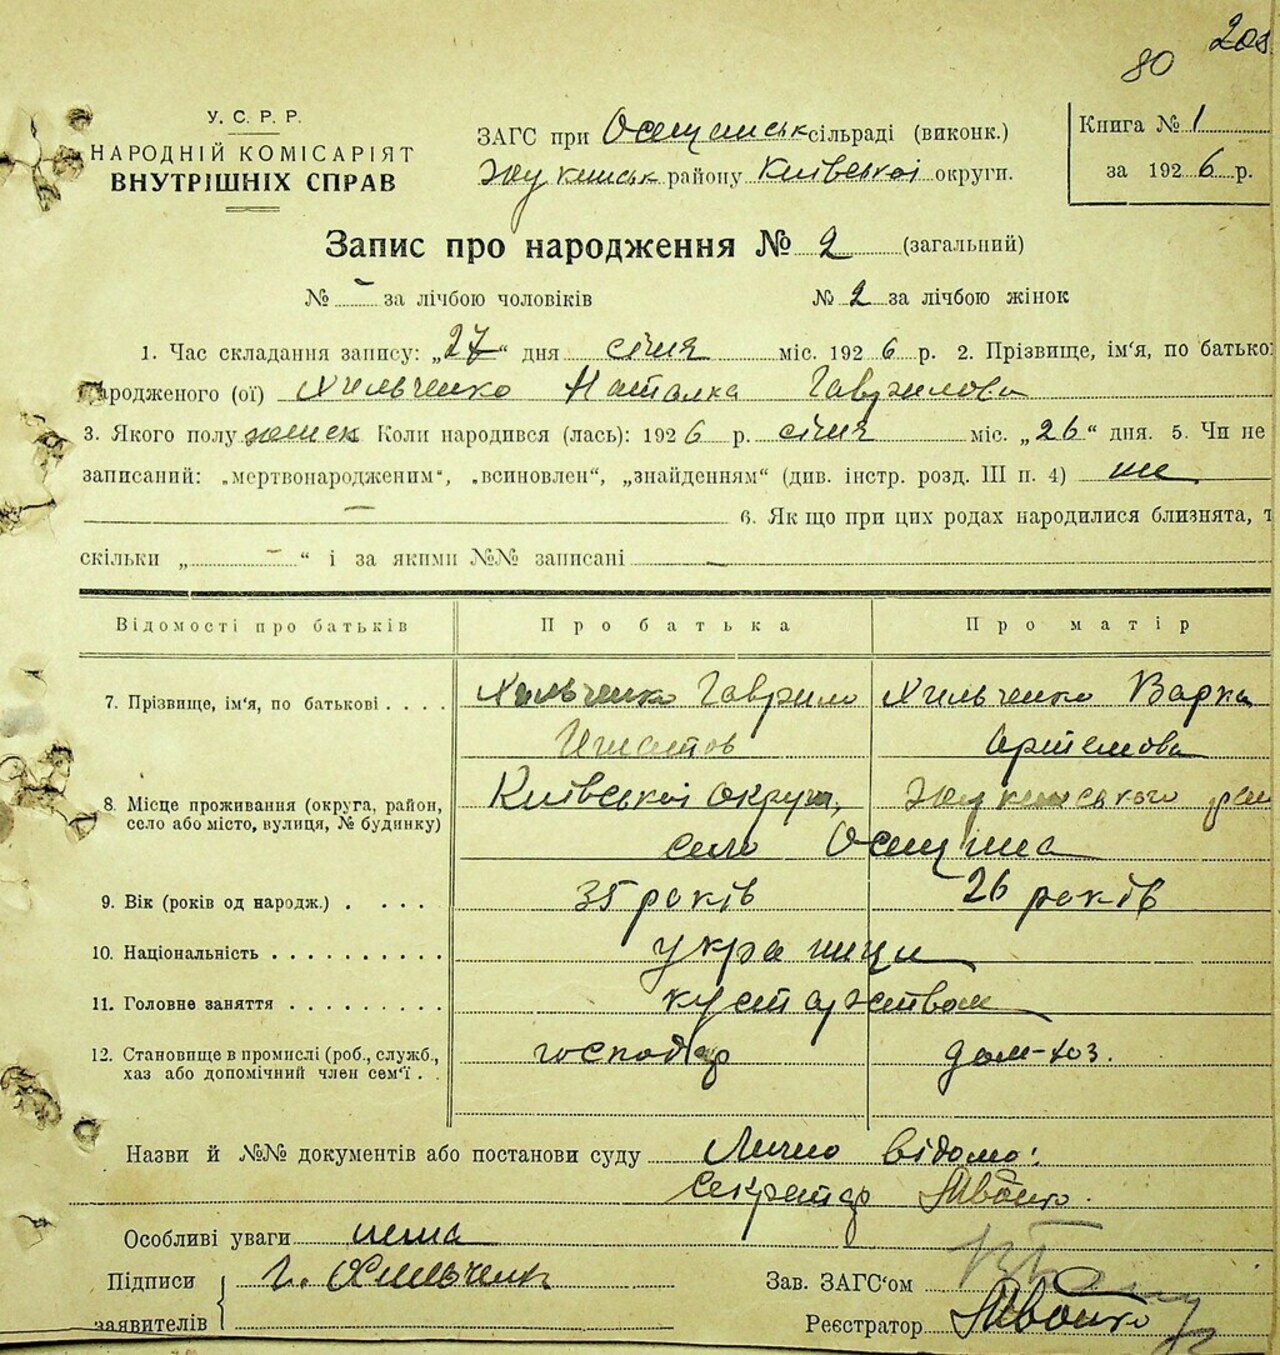 208
80
У. С. Р. Р.
НАРОДНІЙ КОМІСАРІЯТ
ВНУТРІШНІХ СПРАВ
ЗАГС при Осещинськ сільраді (виконк.)
Жукинськ району Київської округи.
Книга № 1
за 1926 р.
Запис про народження № 2 (загальний)
№ - за лічбою чоловіків № 2 за лічбою жінок
1. Час складання запису: „27“ дня січня міс. 1926 р. 2. Прізвище, ім'я, по батько
народженого (ої) Хильченко Наталка Гаврилова
3. Якого полу женск Коли народився (лась): 1926 р. січня міс. „26“ дня. 5. Чи не
записаний: „мертвонародженим“, „всиновлен“, „знайденням“ (див. інстр. розд. III п. 4) не
— 6. Як що при цих родах народилися близнята, т
скільки „ - “ і за якими №№ записані —
Відомості про батьків Про батька Про матір
7. Прізвище, ім'я, по батькові . . . . Хильченко Гаврило Хильченко Варка
Игнатов Артемова
8. Місце проживання (округа, район, село або місто, вулиця, № будинку) Київської округи, Жукинського рай
село Осещина
9. Вік (років од народж.) . . . . 35 років 26 років
10. Національність . . . . . . . . . . українци
11. Головне заняття . . . . . . . . . кустарством
12. Становище в промислі (роб., служб., хаз або допомічний член сем'ї . . господар дом-хоз.
Назви й №№ документів або постанови суду Лично відомо:
Секретар
Особливі уваги нема
Підписи Г. Хильченк Зав. ЗАГС'ом
заявителів Реєстратор